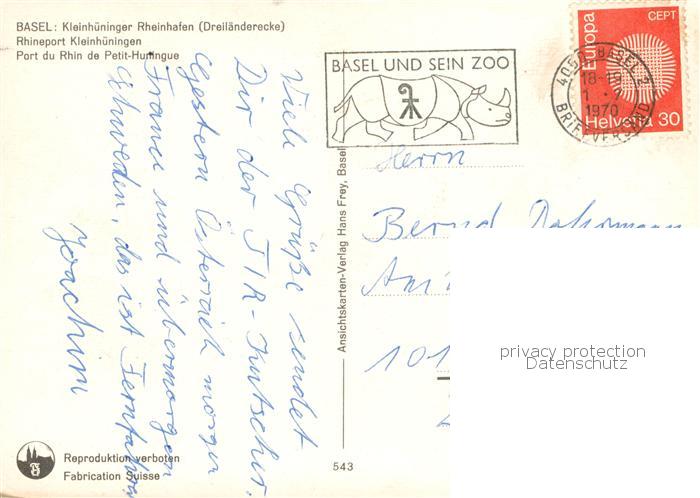 BASEL: Kleinhüninger Rheinhafen (Dreiländerecke)
Rhineport Kleinhüningen
Port du Rhin de Petit-Huningue
Viele Grüße sendet
Dir der TIR-Kutscher.
Gestern Österreich morgen
France und übermorgen
Schweden, das ist Fernfahrer
Joachim
Reproduktion verboten
Fabrication Suisse
Ansichtskarten-Verlag Hans Frey, Basel
543
BASEL UND SEIN ZOO
4050 BASEL
18-19
1
1970
BRIEFVERSAND
Europa
CEPT
Helvetia 30
Herrn
Bernd
101
privacy protection
Datenschutz